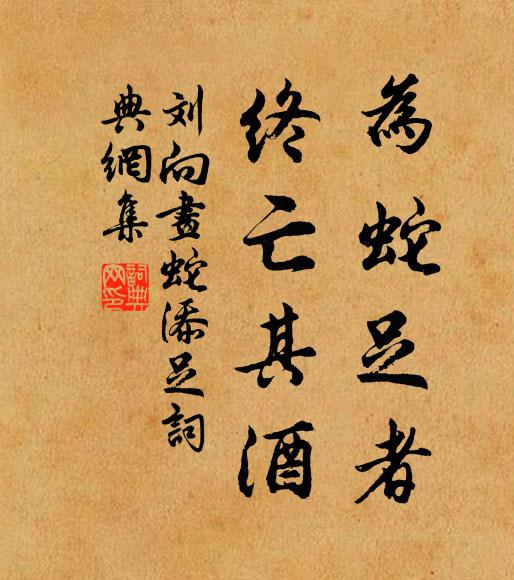 為蛇足者
終亡其酒
刘向畫蛇添足詞
典網集
詞典
网印